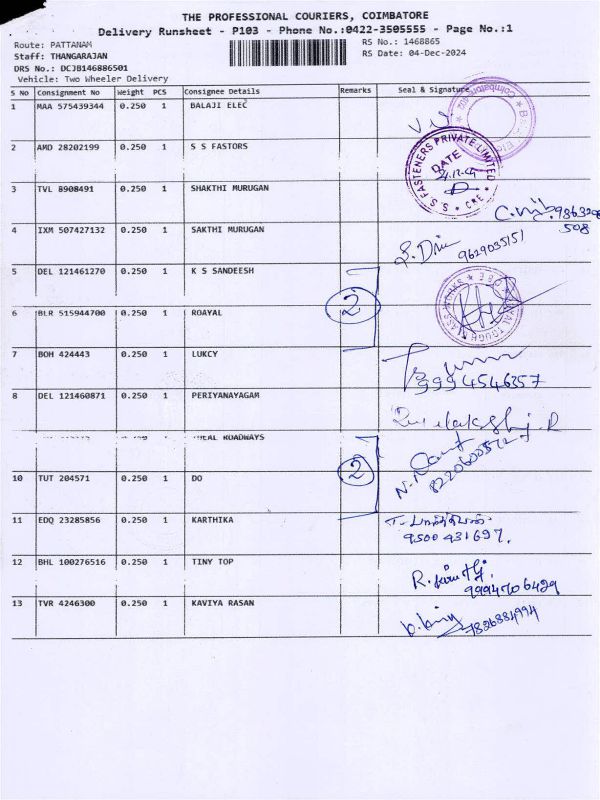 THE PROFESSIONAL COURIERS, COIMBATORE
Delivery Runsheet - P103 - Phone No.:0422-3505555 - Page No.:1
Route: PATTANAM
RS No.: 1468865
Staff: THANGARAJAN
RS Date: 04-Dec-2024
DRS No.: DCJB146886501
Vehicle: Two Wheeler Delivery
S No Consignment No Weight PCS Consignee Details Remarks Seal & Signature
1 MAA 575439344 0.250 1 BALAJI ELEC
2 AMD 28202199 0.250 1 S S FASTORS
S. S. FASTENERS PRIVATE LIMITED * CBE *
DATE
3 TVL 8908491 0.250 1 SHAKTHI MURUGAN
4 IXM 507427132 0.250 1 SAKTHI MURUGAN
508
9629035151
5 DEL 121461270 0.250 1 K S SANDEESH
2
6 BLR 515944700 0.250 1 ROAYAL
7 BOH 424443 0.250 1 LUKCY
9994546357
8 DEL 121460871 0.250 1 PERIYANAYAGAM
ROADWAYS
2
10 TUT 204571 0.250 1 DO
11 EDQ 23285856 0.250 1 KARTHIKA
9500431697.
12 BHL 100276516 0.250 1 TINY TOP
13 TVR 4246300 0.250 1 KAVIYA RASAN